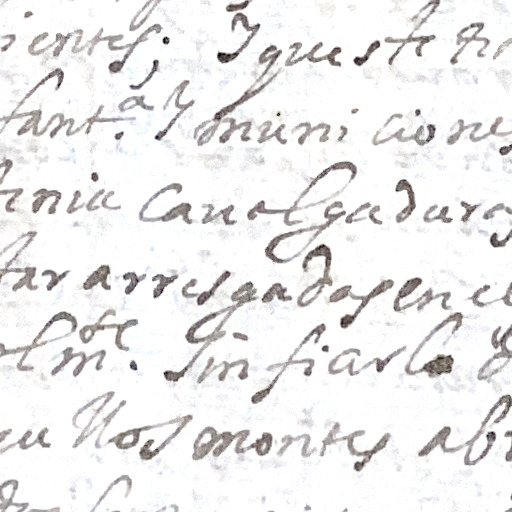 ientes; Y queste tr
fant.ª Y municiones
tenia Caualgaduras
tar arresgadas en el
lmte. sin fiarlo d
quellos montes abr